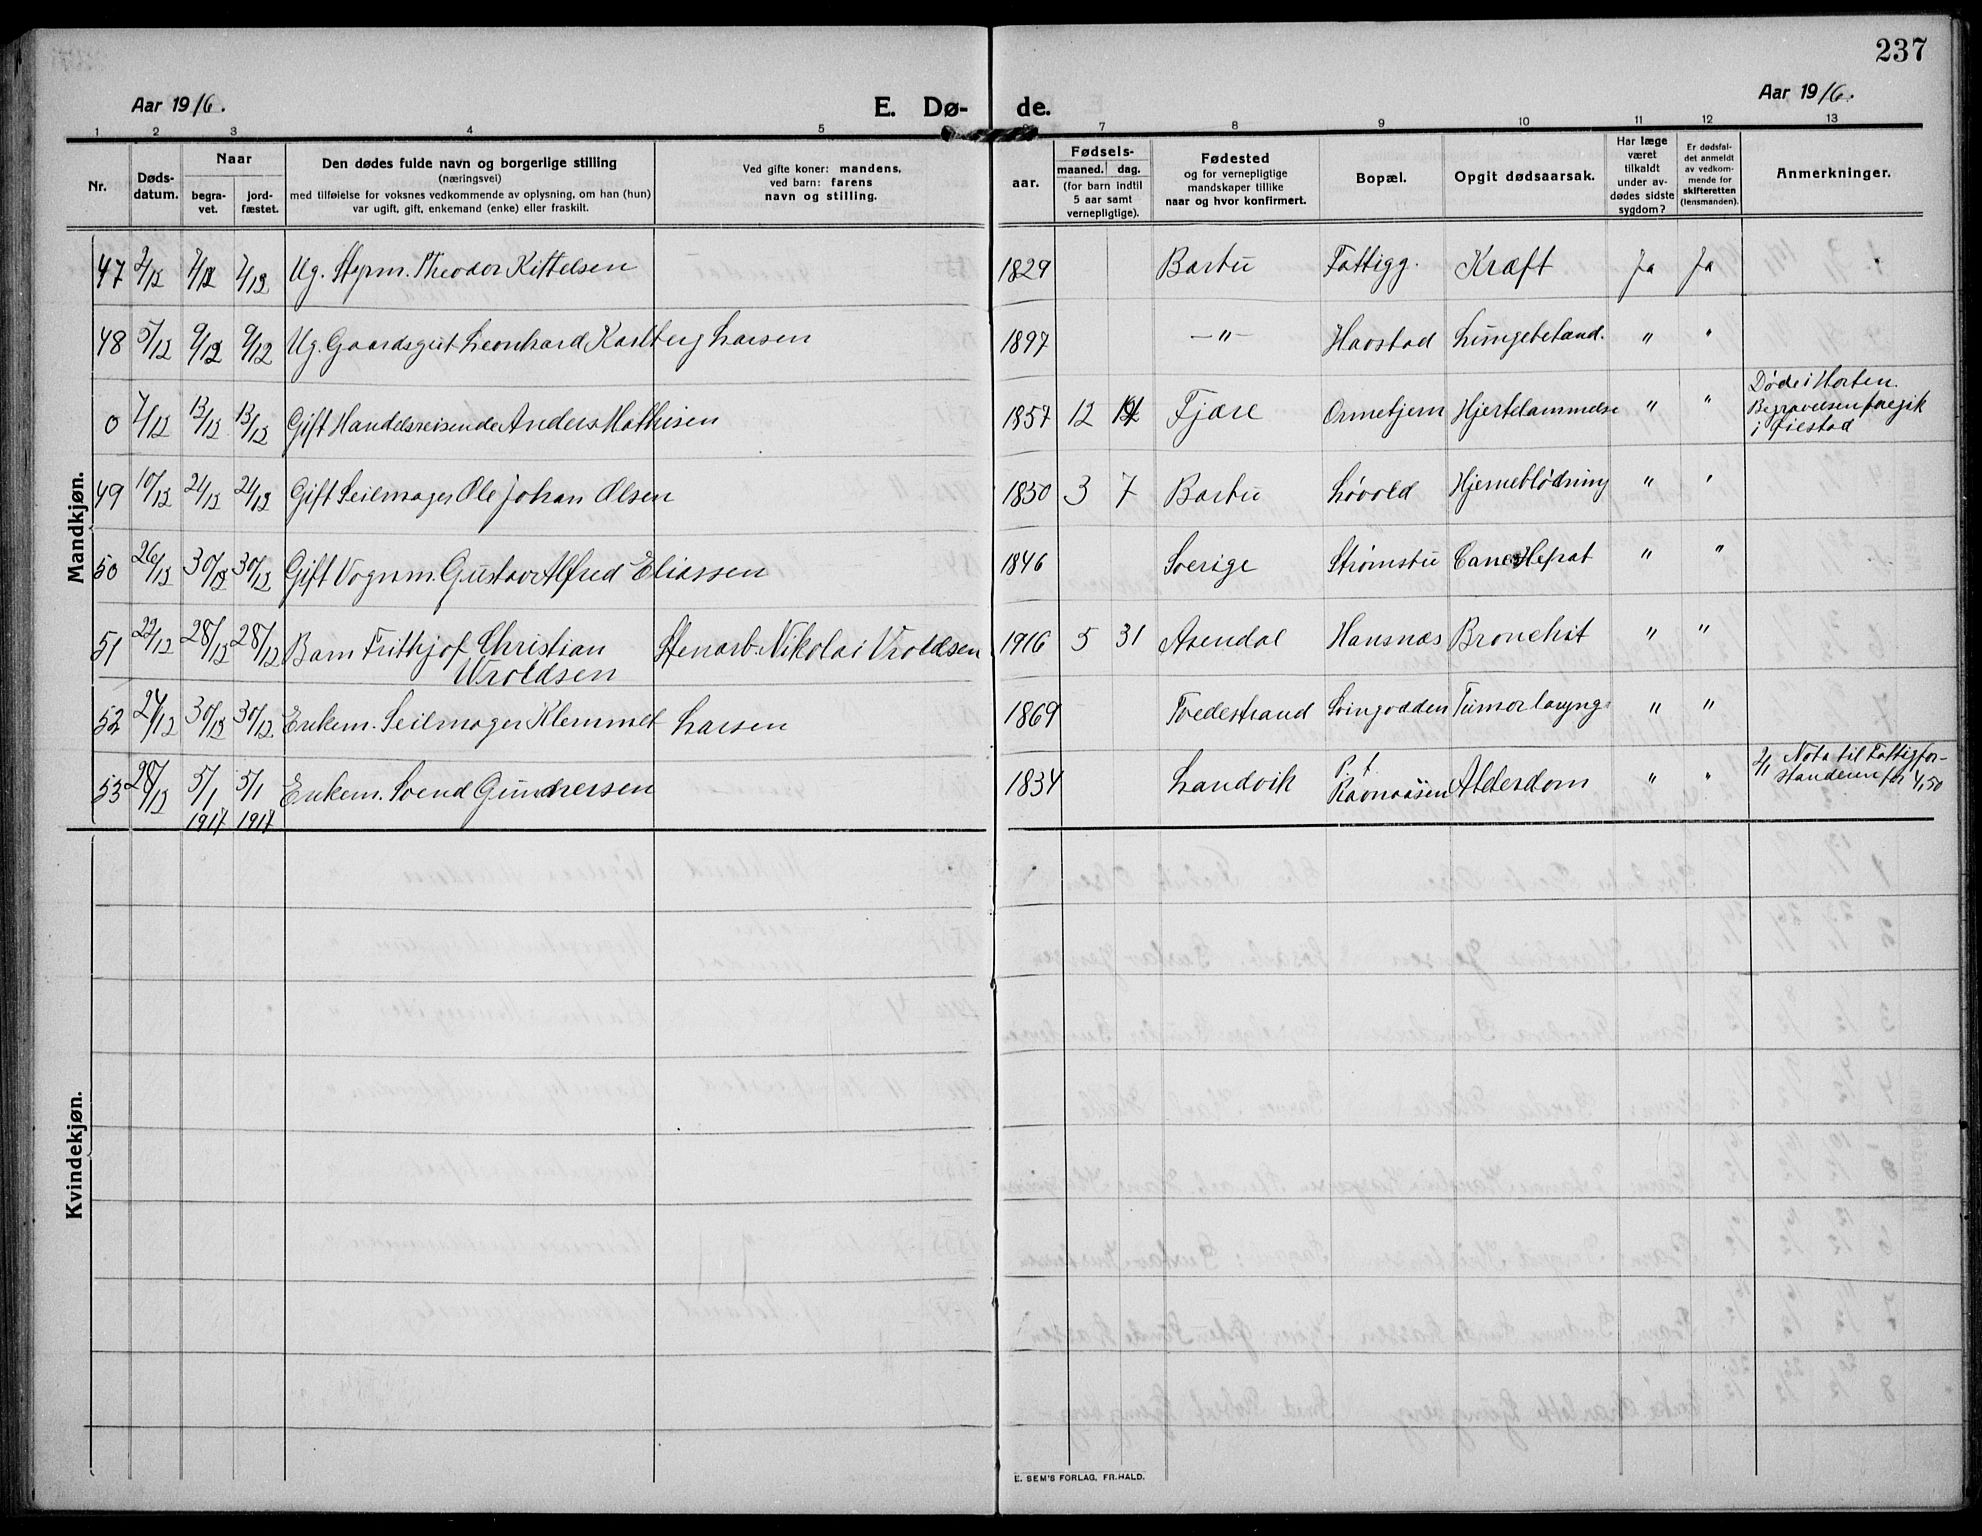 237
Aar 1916. E. Dø- de. Aar 1916.
1 2 3 4 5 6 7 8 9 10 11 12 13
Nr. Døds-datum. Naar begra-vet. jord-fæstet. Den dødes fulde navn og borgerlige stilling (næringsvei) med tilføielse for voksnes vedkommende av oplysning, om han (hun) var ugift, gift, enkemand (enke) eller fraskilt. Ved gifte koner: mandens, ved barn: farens navn og stilling. aar. Fødsels- maaned. dag. (for barn indtil 5 aar samt vernepligtige). Fødested og for vernepligtige mandskaper tillike naar og hvor konfirmert. Bopæl. Opgit dødsaarsak. Har læge været tilkaldt under av-dødes sidste sygdom? Er dødsfal-det anmeldt av vedkom-mende for skifteretten (lensmanden). Anmerkninger.
Mandkjøn.
47 2/12 7/12 7/12 Ug. Styrm. Theodor Kittelsen 1829 Barbu Fattigg. Kræft Ja Ja
48 5/12 9/12 9/12 Ug. Gaardsgut Leonhard Karlberg Larsen 1897 —"— Havstad Lungebetænd. " "
0 7/12 13/12 13/12 Gift Handelsreisende Anders Mathisen 1857 12 Fjære Ormetjern Hjertelammelse " " Døde i Horten. Begravelsen foregik i Øiestad
49 10/12 21/12 21/12 Gift Seilmager Ole Johan Olsen 1850 3 7 Barbu Løvold Hjerneblødning " "
50 26/12 30/12 30/12 Gift Vognm. Gustav Alfred Eliassen 1846 Sverige Strømsbu Canc. Hepat " "
51 22/12 28/12 28/12 Barn Frithjof Christian Vroldsen Stenarb. Nikolai Vroldsen 1916 5 31 Arendal Hansnæs Bronchit " "
52 24/12 30/12 30/12 Enkem. Seilmager Klemmet Larsen 1869 Tvedestrand Svingodden Tumor laryng. " "
53 28/12 5/1 1917 5/1 1917 Enkem. Svend Gundersen 1834 Landvik P.t. Ravnaasen Alderdom " " 2/1 Nota til Fattigfor-standeren for 4,50
Kvindekjøn.
E. SEM'S FORLAG, FR.HALD.